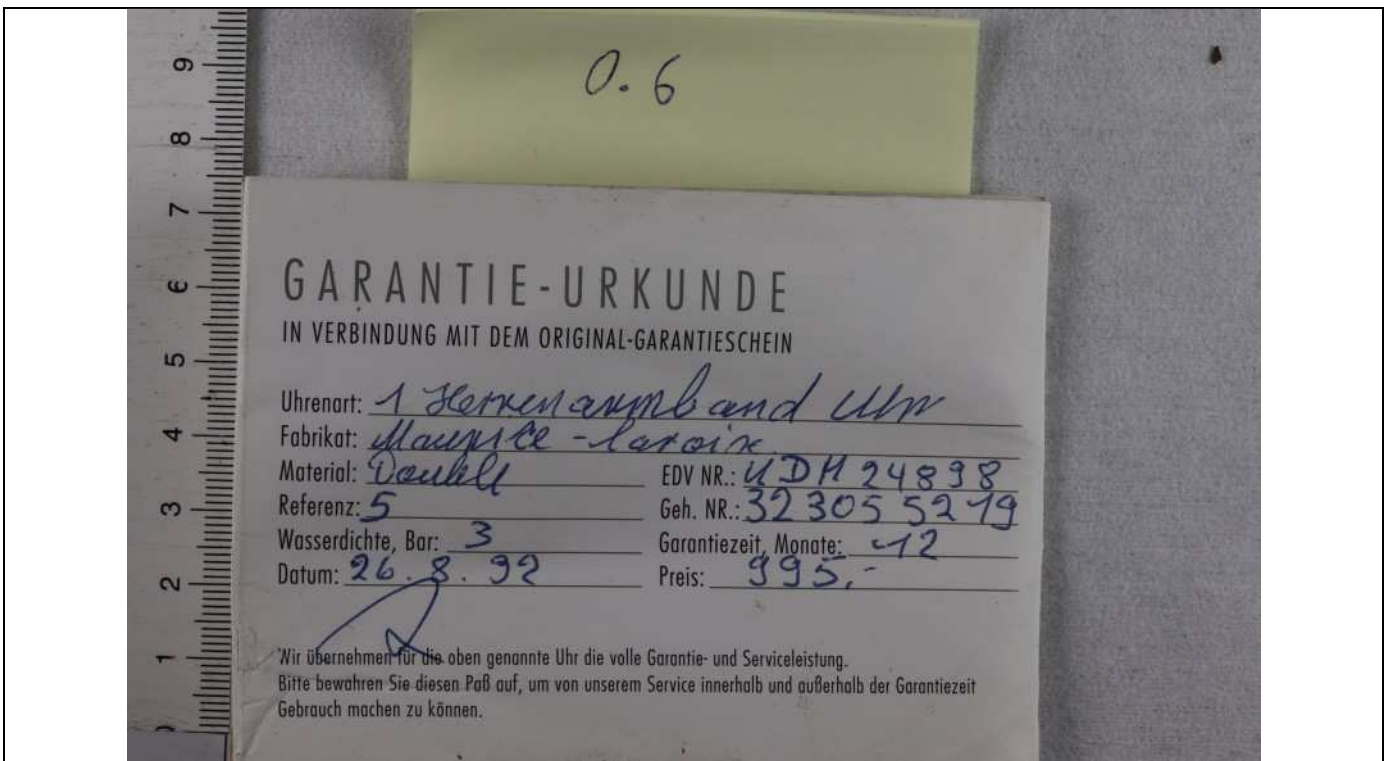 0.6
GARANTIE-URKUNDE
IN VERBINDUNG MIT DEM ORIGINAL-GARANTIESCHEIN
Uhrenart: 1 Herrenarmband Uhr
Fabrikat: Maurice-Laroix
Material: Doublé EDV NR.: UDH 24898
Referenz: 5 Geh. NR.: 32305 5219
Wasserdichte, Bar: 3 Garantiezeit, Monate: 12
Datum: 26.8.92 Preis: 995,-
Wir übernehmen für die oben genannte Uhr die volle Garantie- und Serviceleistung.
Bitte bewahren Sie diesen Paß auf, um von unserem Service innerhalb und außerhalb der Garantiezeit
Gebrauch machen zu können.
9
8
7
6
5
4
3
2
1